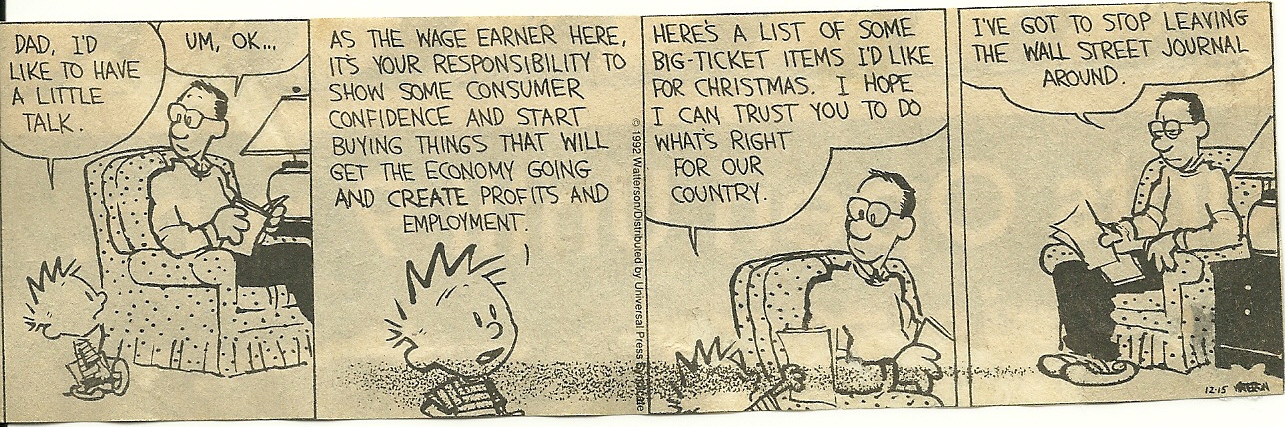 DAD, I'D
LIKE TO HAVE
A LITTLE
TALK.
UM, OK...
AS THE WAGE EARNER HERE,
IT'S YOUR RESPONSIBILITY TO
SHOW SOME CONSUMER
CONFIDENCE AND START
BUYING THINGS THAT WILL
GET THE ECONOMY GOING
AND CREATE PROFITS AND
EMPLOYMENT.
© 1992 Watterson/Distributed by Universal Press Syndicate
HERE'S A LIST OF SOME
BIG-TICKET ITEMS I'D LIKE
FOR CHRISTMAS. I HOPE
I CAN TRUST YOU TO DO
WHAT'S RIGHT
FOR OUR
COUNTRY.
I'VE GOT TO STOP LEAVING
THE WALL STREET JOURNAL
AROUND.
12-15 WATTERSON